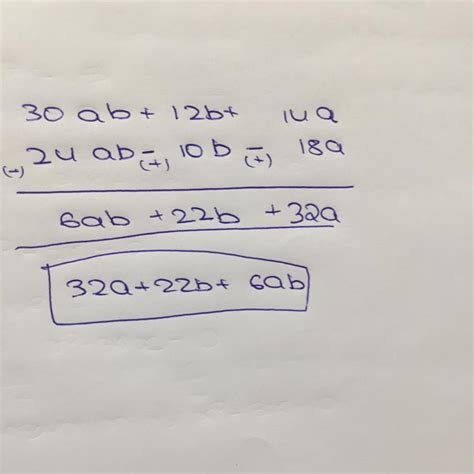 30 ab + 12b + 14a
24 ab - 10b - 18a
(-) (+) (+)
6ab + 22b + 32a
32a + 22b + 6ab